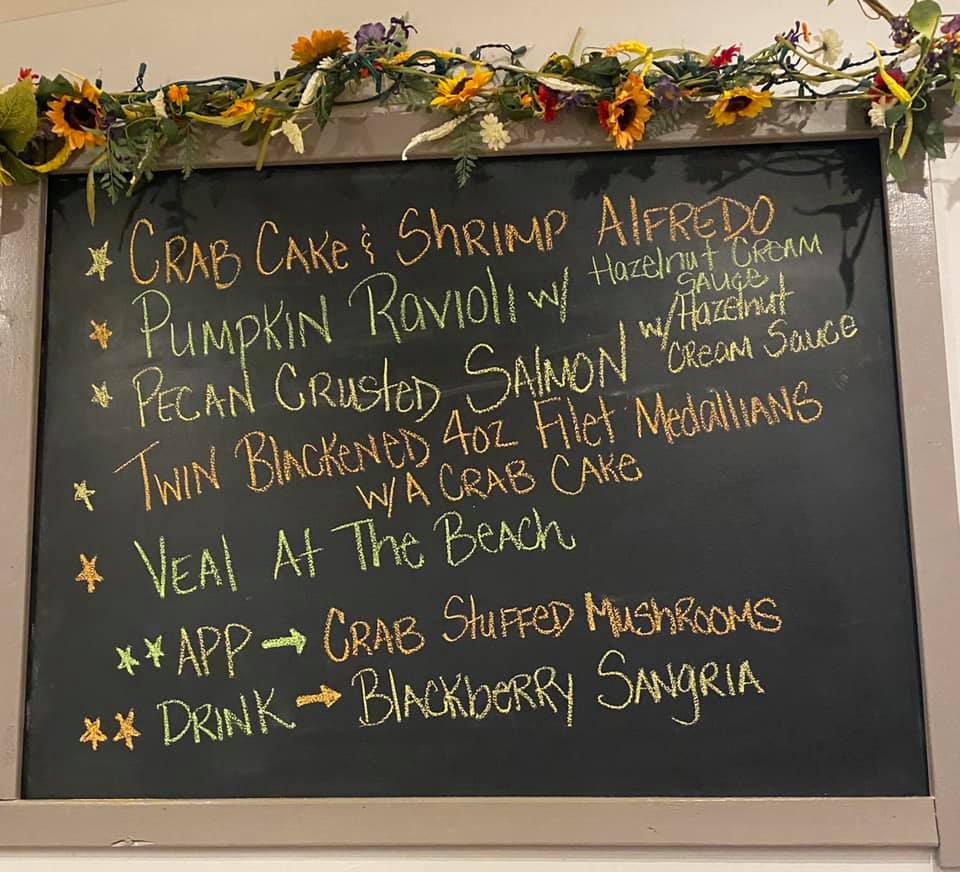 CRAB CAKE & SHRIMP ALFREDO
PUMPKIN RAVIOLI W/ HAZELNUT CREAM SAUCE
PECAN CRUSTED SALMON W/ HAZELNUT CREAM SAUCE
TWIN BLACKENED 4oz FILET MEDALLIANS
W/A CRAB CAKE
VEAL AT THE BEACH
APP → CRAB STUFFED MUSHROOMS
DRINK → BLACKBERRY SANGRIA